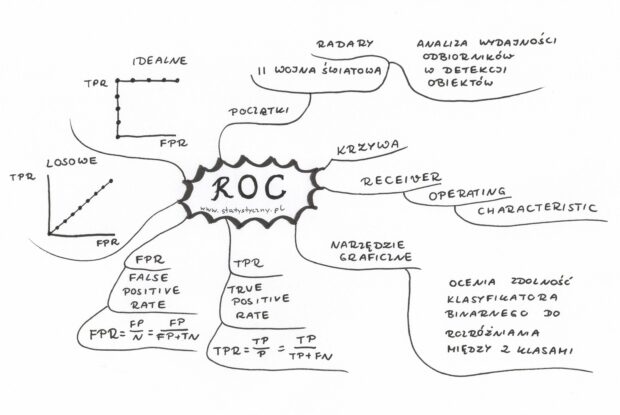 IDEALNE
TPR
FPR
LOSOWE
TPR
FPR
RADARY
II WOJNA ŚWIATOWA
POCZĄTKI
ANALIZA WYDAJNOŚCI
ODBIORNIKÓW
W DETEKCJI
OBIEKTÓW
ROC
www.statystyczny.pl
KRZYWA
RECEIVER
OPERATING
CHARACTERISTIC
NARZĘDZIE
GRAFICZNE
OCENIA ZDOLNOŚĆ
KLASYFIKATORA
BINARNEGO DO
ROZRÓŻNIANIA
MIĘDZY 2 KLASAMI
FPR
FALSE
POSITIVE
RATE
FPR = FP/N = FP/FP+TN
TPR
TRUE
POSITIVE
RATE
TPR = TP/P = TP/TP+FN